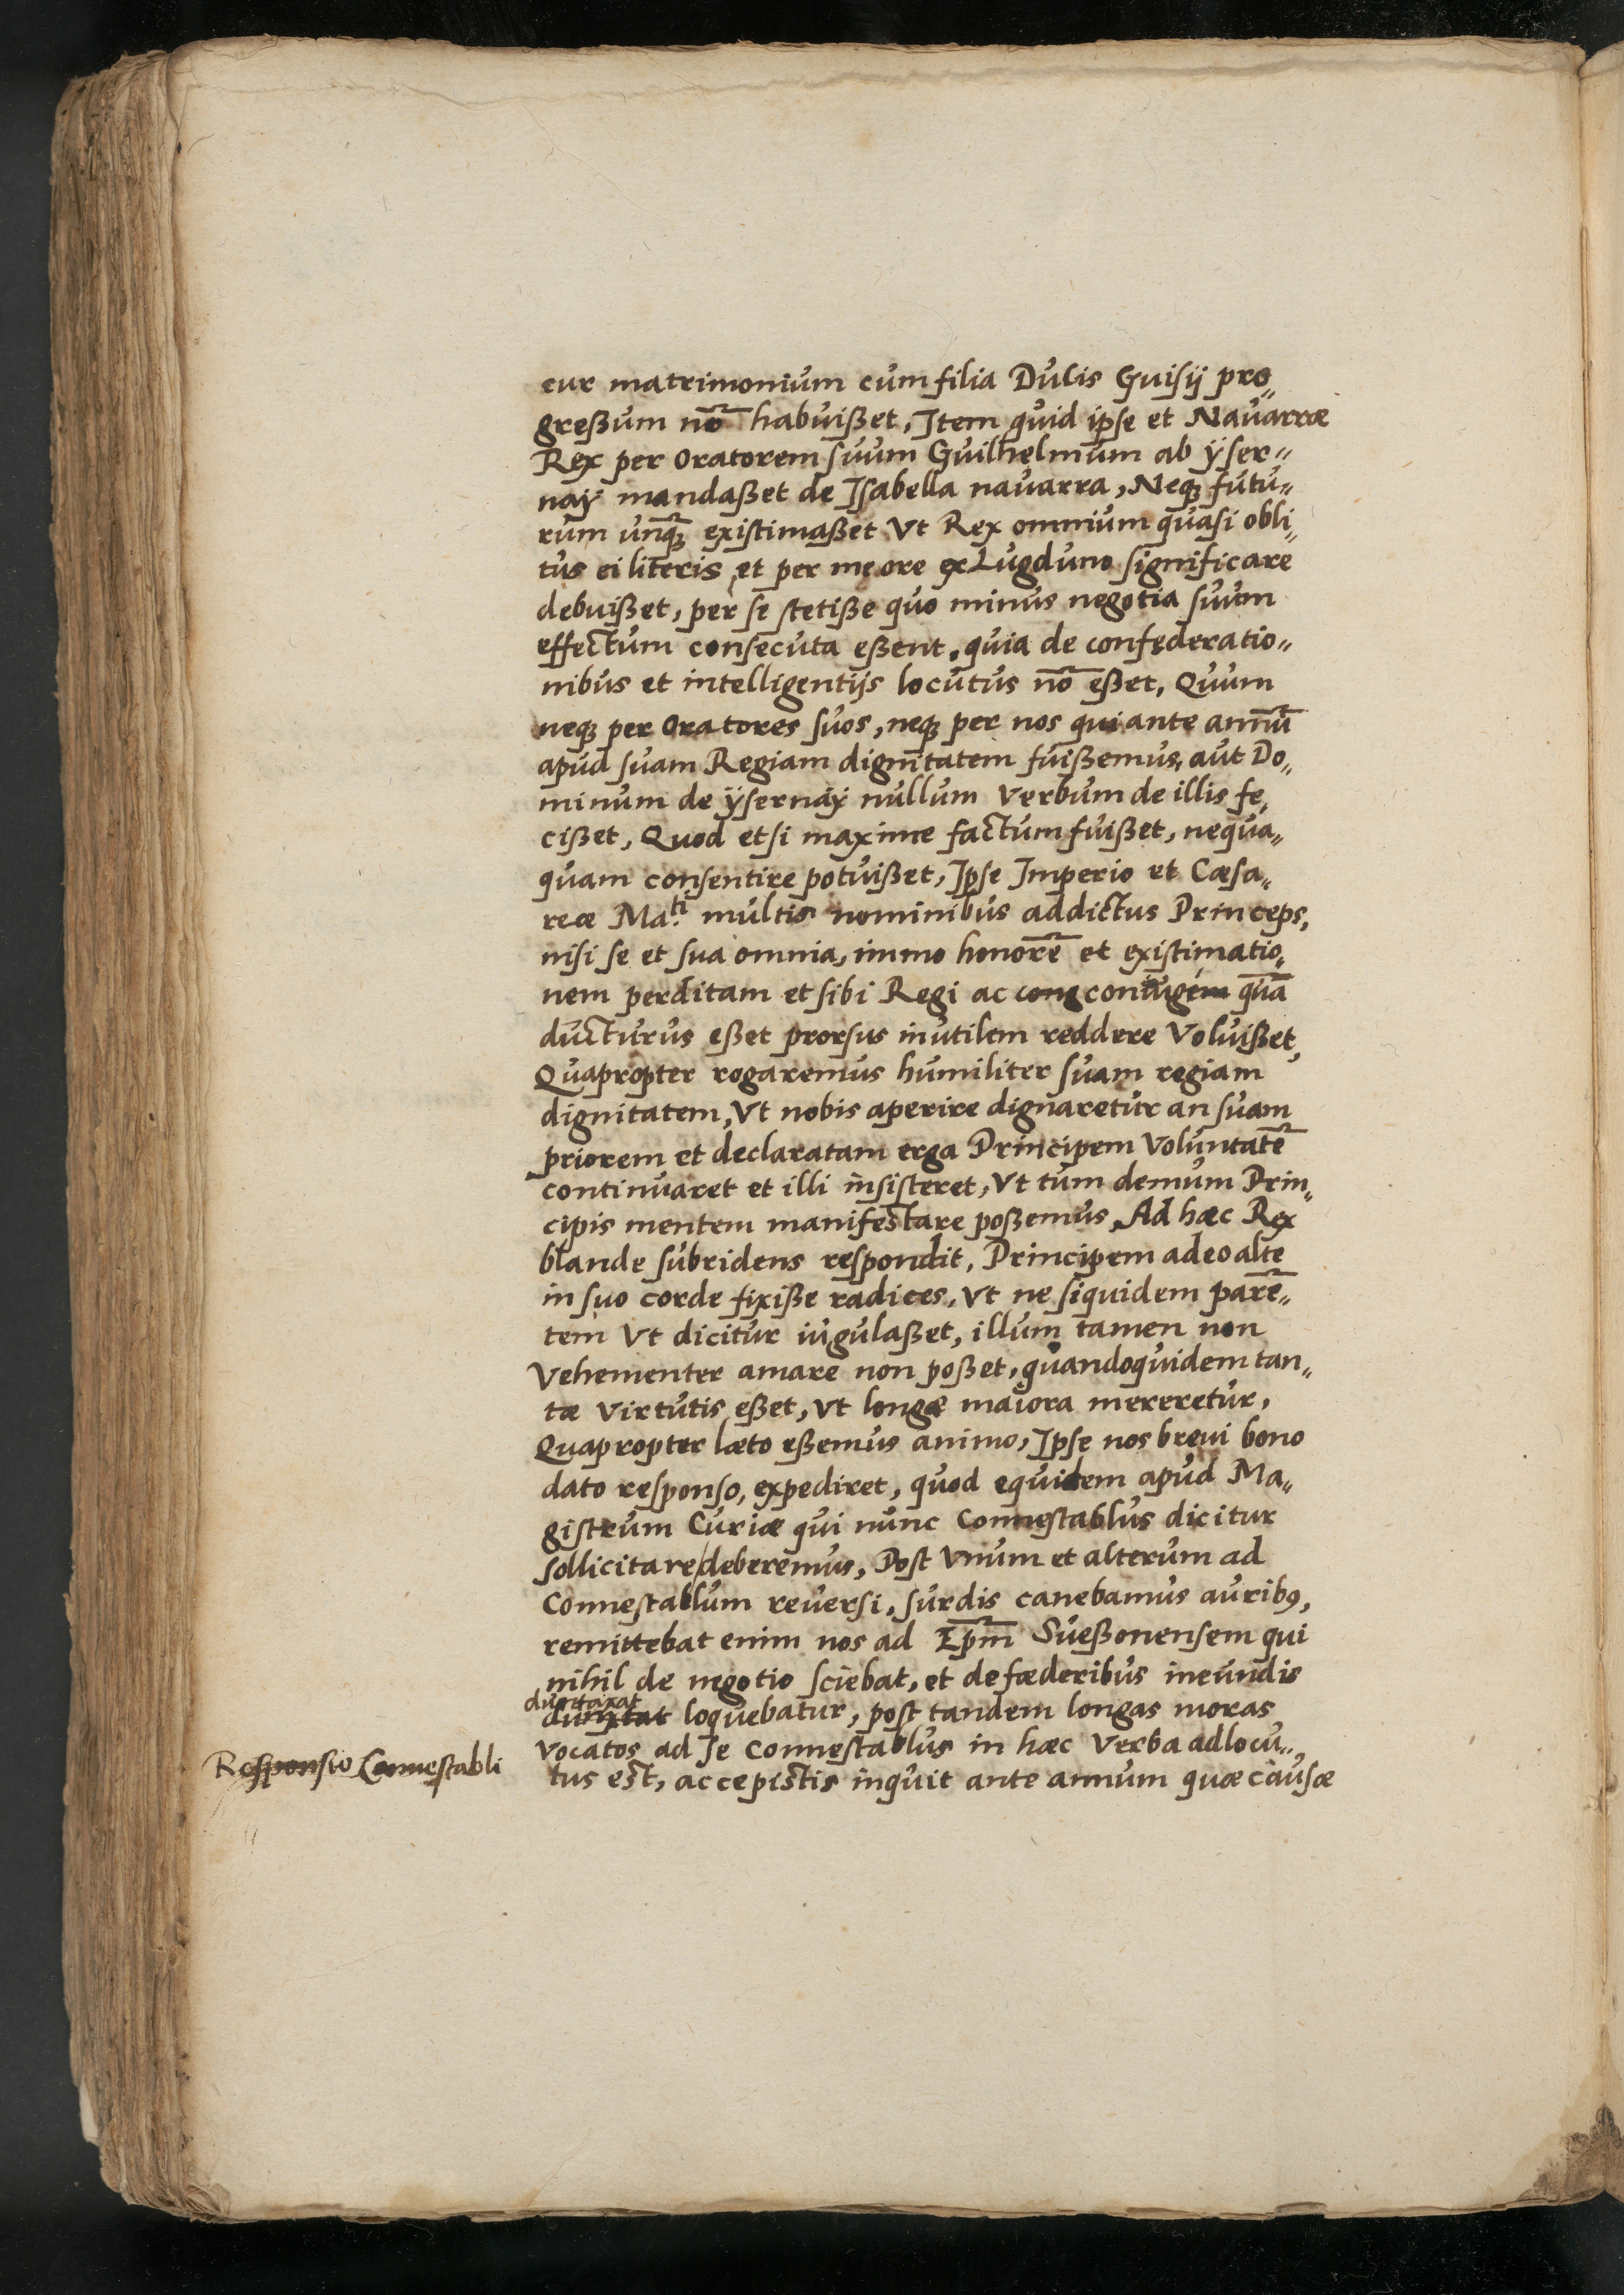 cur matrimonium cum filia Dulis Guisij pro„
greßum nō habuißet, Item quid ipse et Nauarræ
Rex per Oratorem suum Guilhelmum ab ÿser„
naÿ mandaßet de Isabella nauarra, Neqꝫ futu„
rum unqꝫ̄ existimaßet Vt Rex omnium quasi obli„
tus ei literis et per me ore ex Lugduno significare
debuißet, per se stetiße quo minus negotia suum
effectum consecuta eßent, quia de confęderatio„
nibus et intelligentijs locutus nō eßet, Quum
neqꝫ per Oratores suos, neqꝫ per nos qui ante annū
apud suam Regiam dignitatem fuißemus, aut Do„
minum de ÿsernaÿ nullum verbum de illis fe„
cißet, Quod etsi maxime factum fuißet, nequa„
quam consentire potuißet, Ipse Imperio et Cæsa„
reæ Ma.ti multis nominibus addictus Princeps,
nisi se et sua omnia, immo honorē et existimatio„
nem perditam et sibi Regi ac cong coniugem quā
ducturus eßet prorsus inutilem reddere Voluißet,
Quapropter rogaremus humiliter suam regiam
dignitatem, Vt nobis aperire dignaretur an suam
priorem et declaratam erga Principem Voluntatē
continuaret et illi insisteret, Vt tum demum Prin„
cipis mentem manifestare poßemus, Ad hæc Rex
blande subridens respondit, Principem adeo alte
in suo corde fixiße radices, Vt ne siquidem parē„
tem Vt dicitur iugulaßet, illum tamen non
Vehementer amare non poßet, quandoquidem tan„
tæ Virtutis eßet, Vt longe maiora mereretur,
Quapropter læto eßemus animo, Ipse nos breui bono
dato responso, expediret, quod equidem apud Ma„
gistrum Curiæ qui nunc Connestablus dicitur
sollicitare deberemus, Post Vnum et alterum ad
Connestablum reuersi, surdis canebamus auribꝰ,
remittebat enim nos ad Epm̄ Sueßonensem qui
nihil de negotio sciebat, et de fæderibus ineundis
duntaxat
loquebatur, post tandem longas moras
Vocatos ad se Connestablus in hæc Verba adlocu„
Responsio Connestabli
tus est, accepistis inquit ante annum quæ causæ